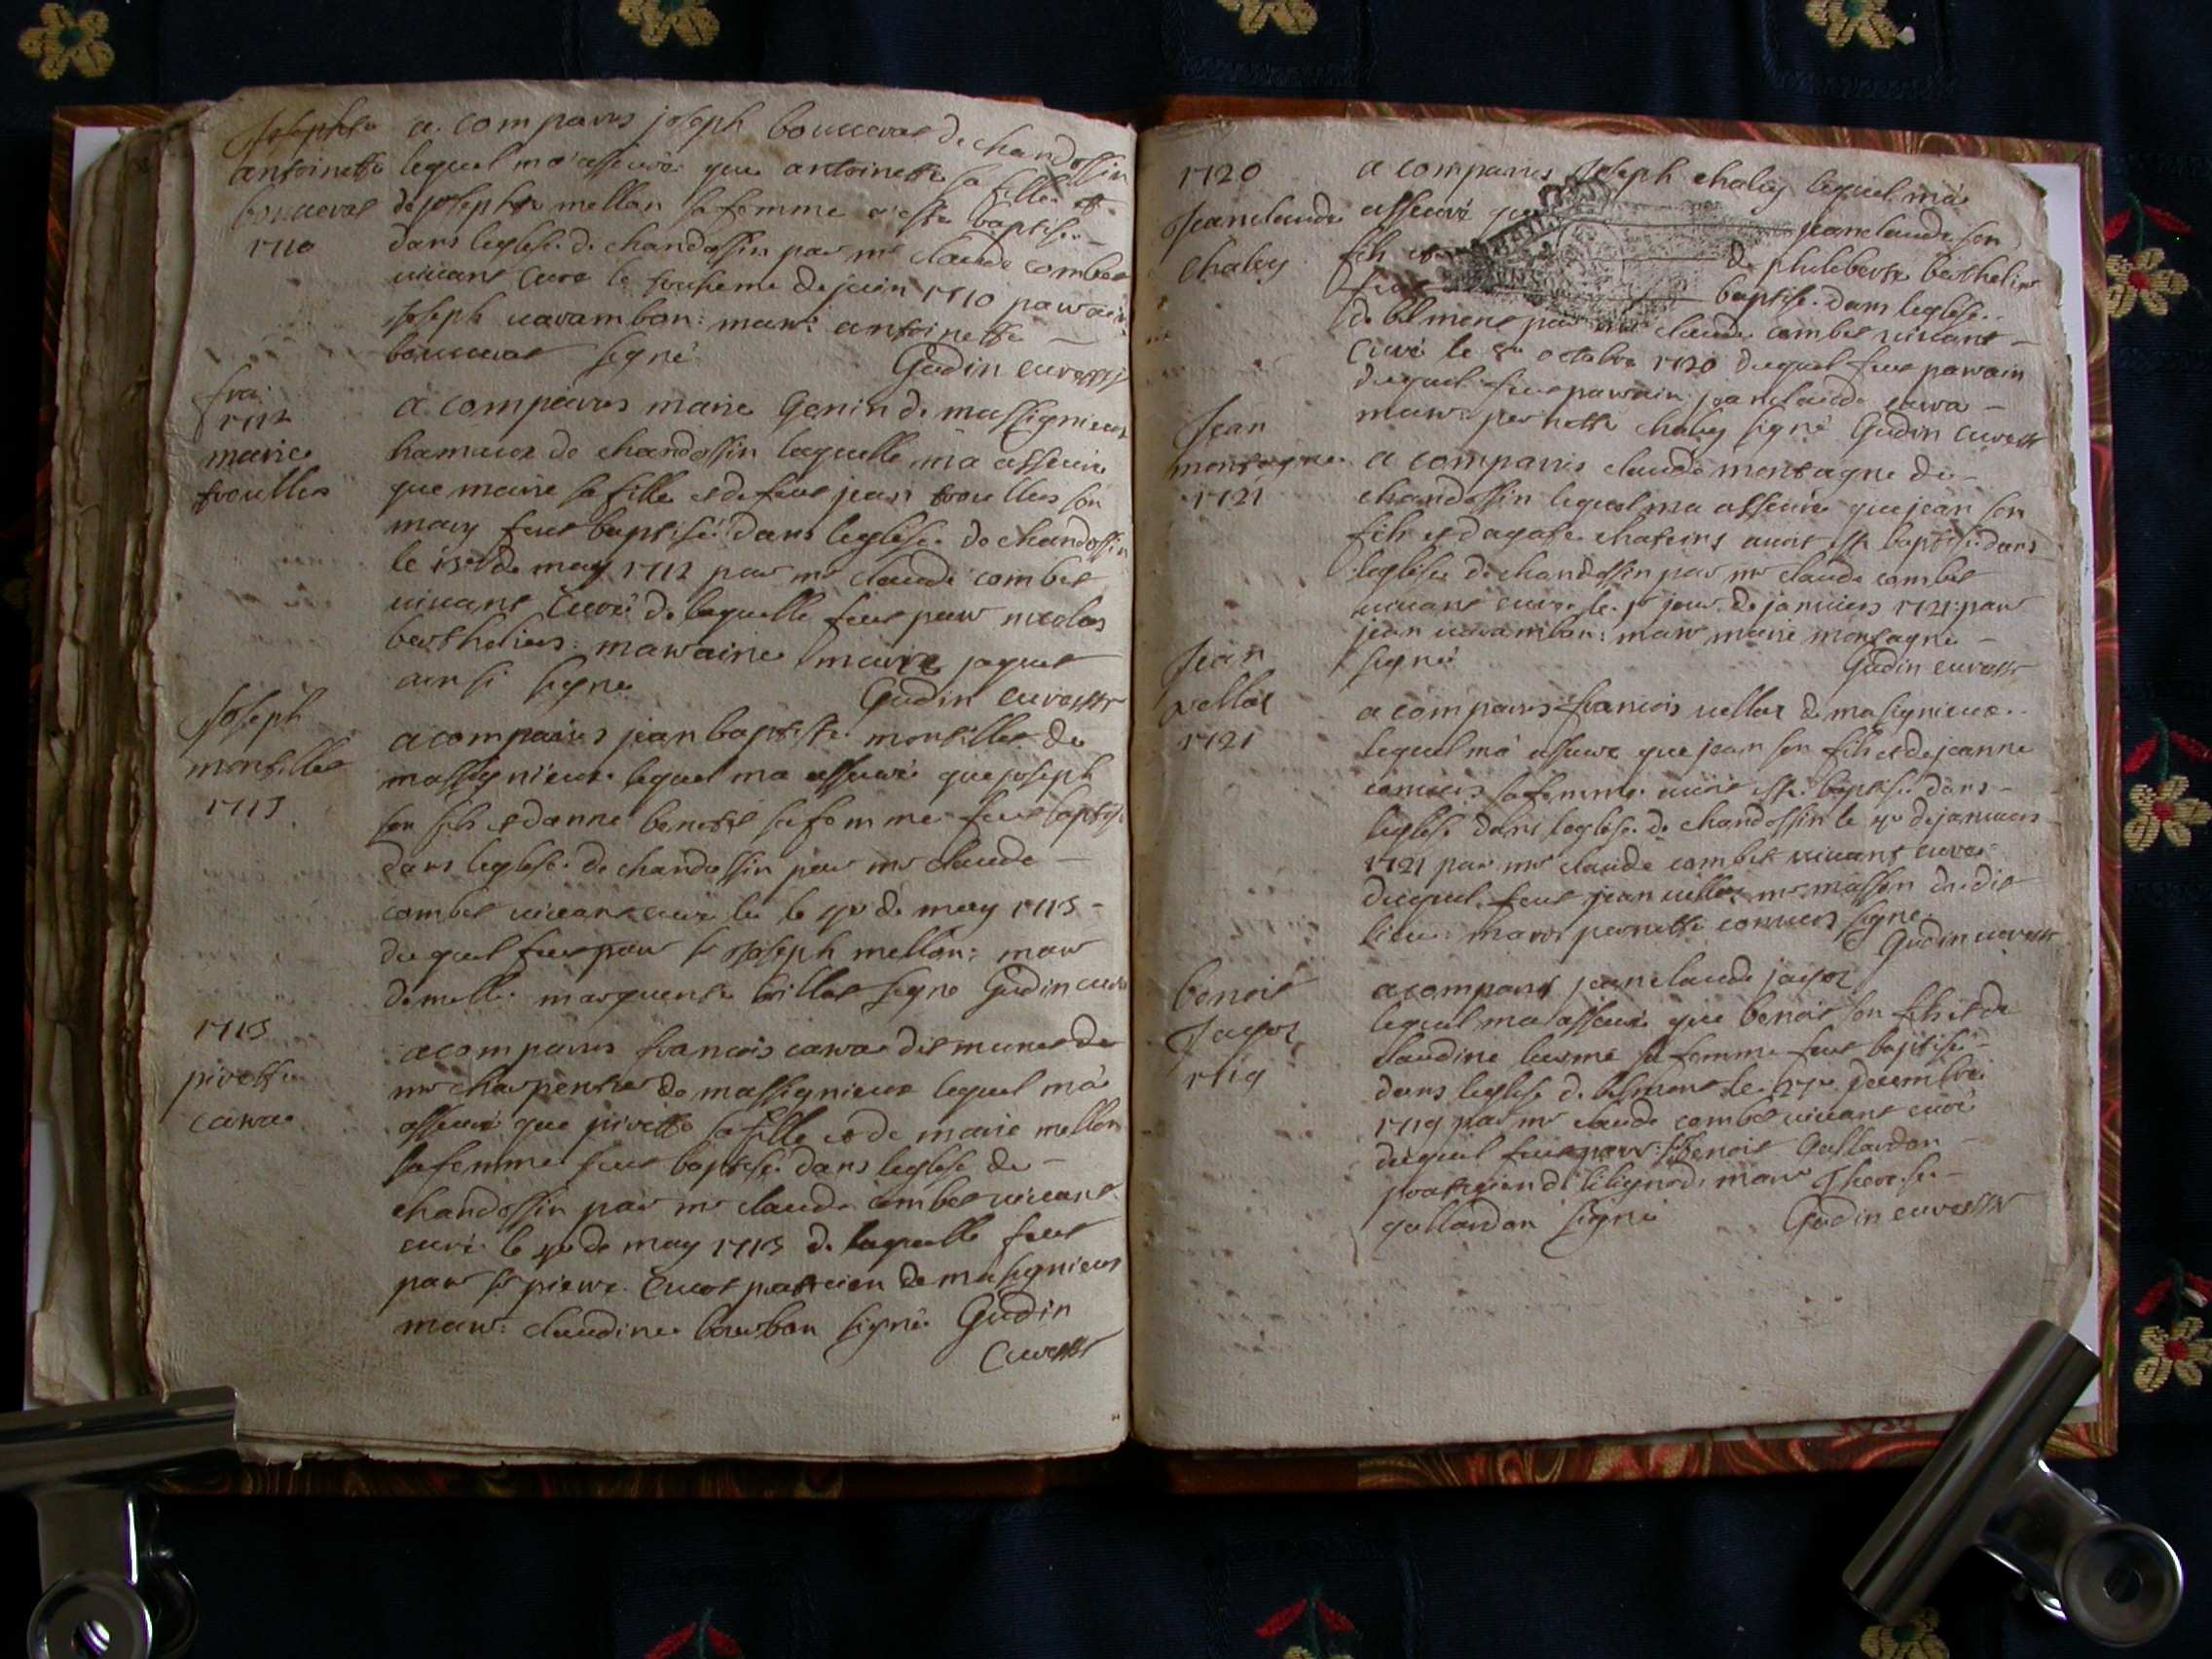 Josephte
antoinette
bouuerat
1710
a comparus joseph bouuerat de chandossin
lequel m'a asseuré que antoinette sa fille et
de josephte mellon sa femme a este baptisee
dans leglise de chandossin par mr claude combet
uiuant curé le de juin 1710 parrain
joseph uarambon: marr: antoinette
bouuerat signé Gudin cure
1712
marie
troulles
a comparus marie Genin de massignieux
hamaux de chandossin laquelle ma asseuré
que marie sa fille et de feu jean troulles son
mary feut baptisée dans leglise de chandossin
le 13e de may 1712 par mr claude combet
uiuant Curé de laquelle feut parr nicolas
berthelier: marraine marie jaquet
ainsi signé Gudin cure
Joseph
montillet
1713
a comparus jean baptiste montillet de
massignieux lequel ma asseuré que joseph
son fils et danne benoist sa femme feut baptisé
dans leglise de chandossin par mr claude
combet uiuant curé le de may 1713
duquel feut parr sr joseph mellon: marr
demlle marguerite billet signé Gudin curé
1713
pirette
carra
a comparus francois carra dit munet de
mr charpentier de massignieux lequel m'a
asseuré que pirette sa fille et de marie mellon
sa femme feut baptisée dans leglise de
chandossin par mr claude combet uiuant
curé le de may 1713 de laquelle feut
parr sr pierre Cucot praticien de masignieux
marr: claudine bourbon signé Gudin
Cure
1720
Jean claude
chaley
a comparus Joseph chaley lequel m'a
asseuré que jean claude son
fils et de philiberte berthelier
feut baptisé dans leglise
de belmont par mr claude combet uiuant
curé le 8e octobre 1720 duquel feut parrain
duquel feut parrain jean claude carra
marr: pernette chaley signé Gudin cure
Jean
montagne
1721
a comparus claude montagne de
chandossin lequel ma asseuré que jean son
fils et dagate chateins auoit esté baptisé dans
leglise de chandossin par mr claude combet
uiuant curé le 1r jour de januier 1721: parr
jean uarambon: marr marie montagne
signé Gudin cure
Jean
uellat
1721
a comparus francois uellat de masignieux
lequel m'a asseuré que jean son fils et de jeanne
conuers sa femme auoit esté baptisé dans
leglise dans leglise de chandossin le de januier
1721 par mr claude combet uiuant curé
duquel feut jean uellat mr masson dudit
lieu: marr pernette conuers signé
Gudin cure
benoit
Jayot
1719
a comparus jean claude jayot
lequel ma asseuré que benoit son fils et de
claudine sa femme feut baptisé
dans leglise de belmont le decembre
1719 par mr claude combet uiuant curé
duquel feut parr: benoit Gallardon
praticien de lilignod: marr Therese
gallardon signé Gudin cure